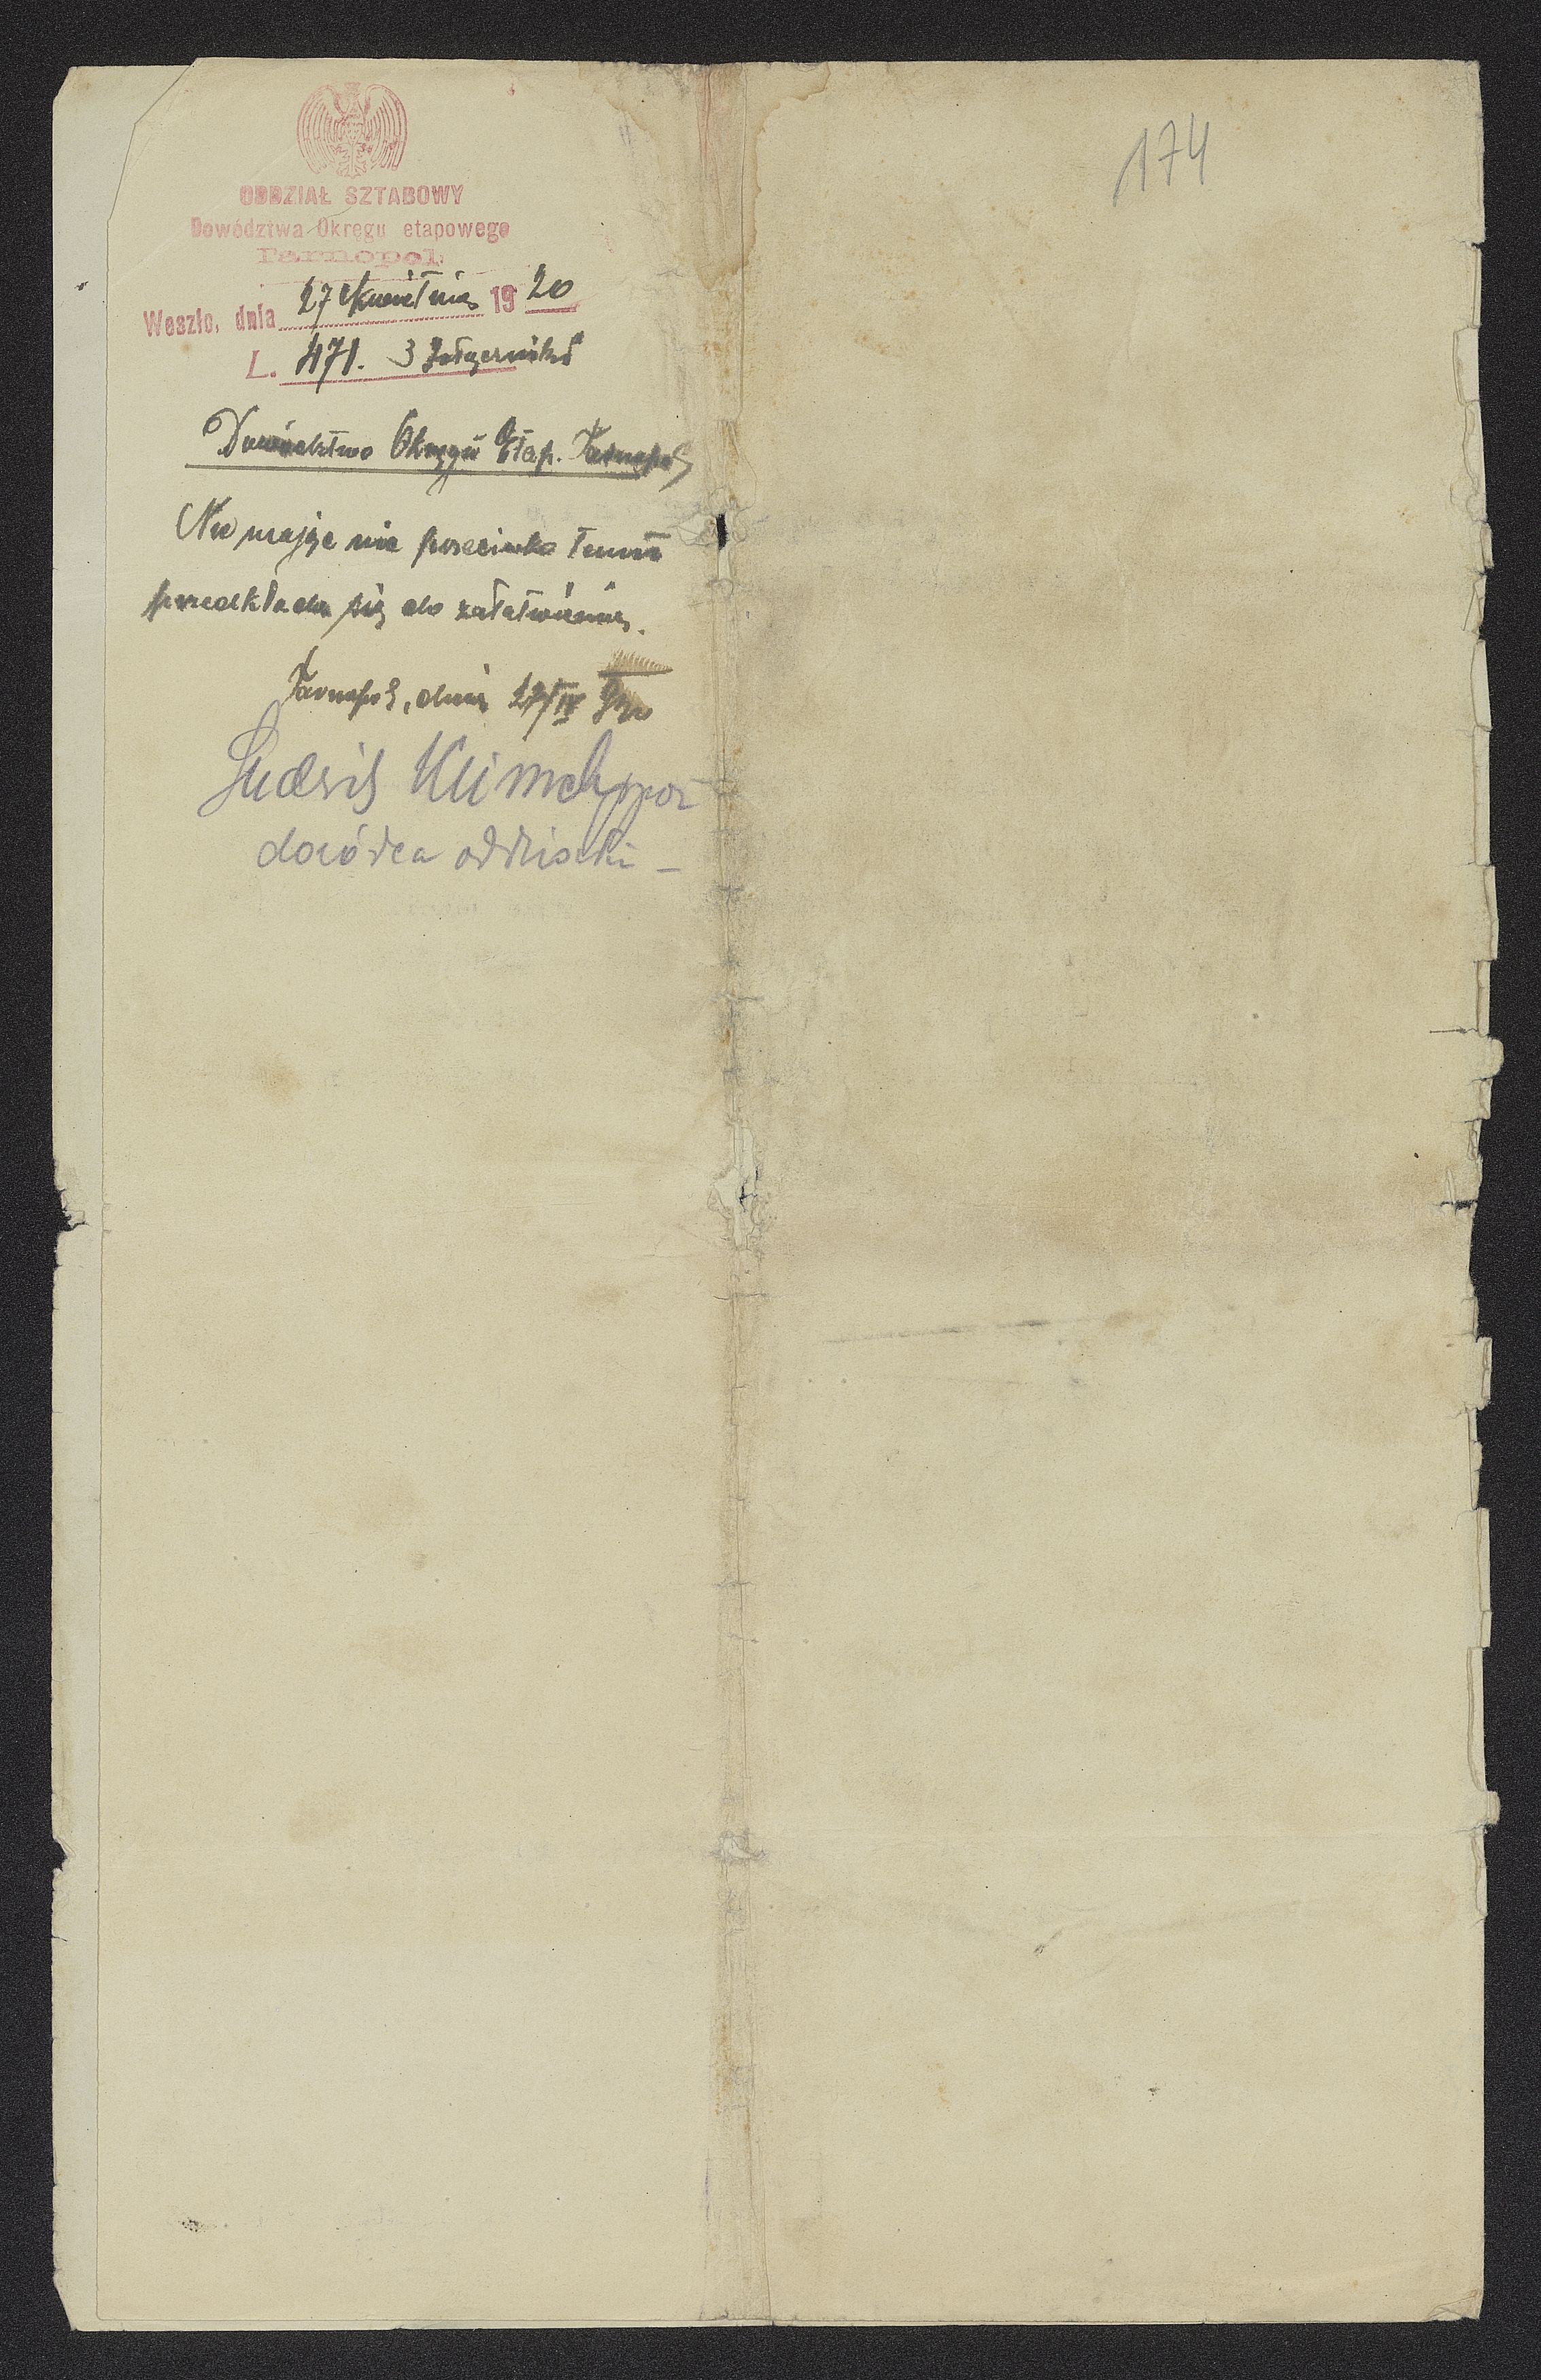 174
ODDZIAŁ SZTABOWY
Dowództwa Okręgu etapowego
Tarnopol
Weszło, dnia 27 Kwietnia 1920
L. 471. 3
Dowództwo Okręgu Etap. Tarnopol
Nie mając nic przeciwko temu
przedkłada się do załatwienia.
Tarnopol, dnia 27/IV 920
Ludwik Klimek ppor
dowódca oddziału